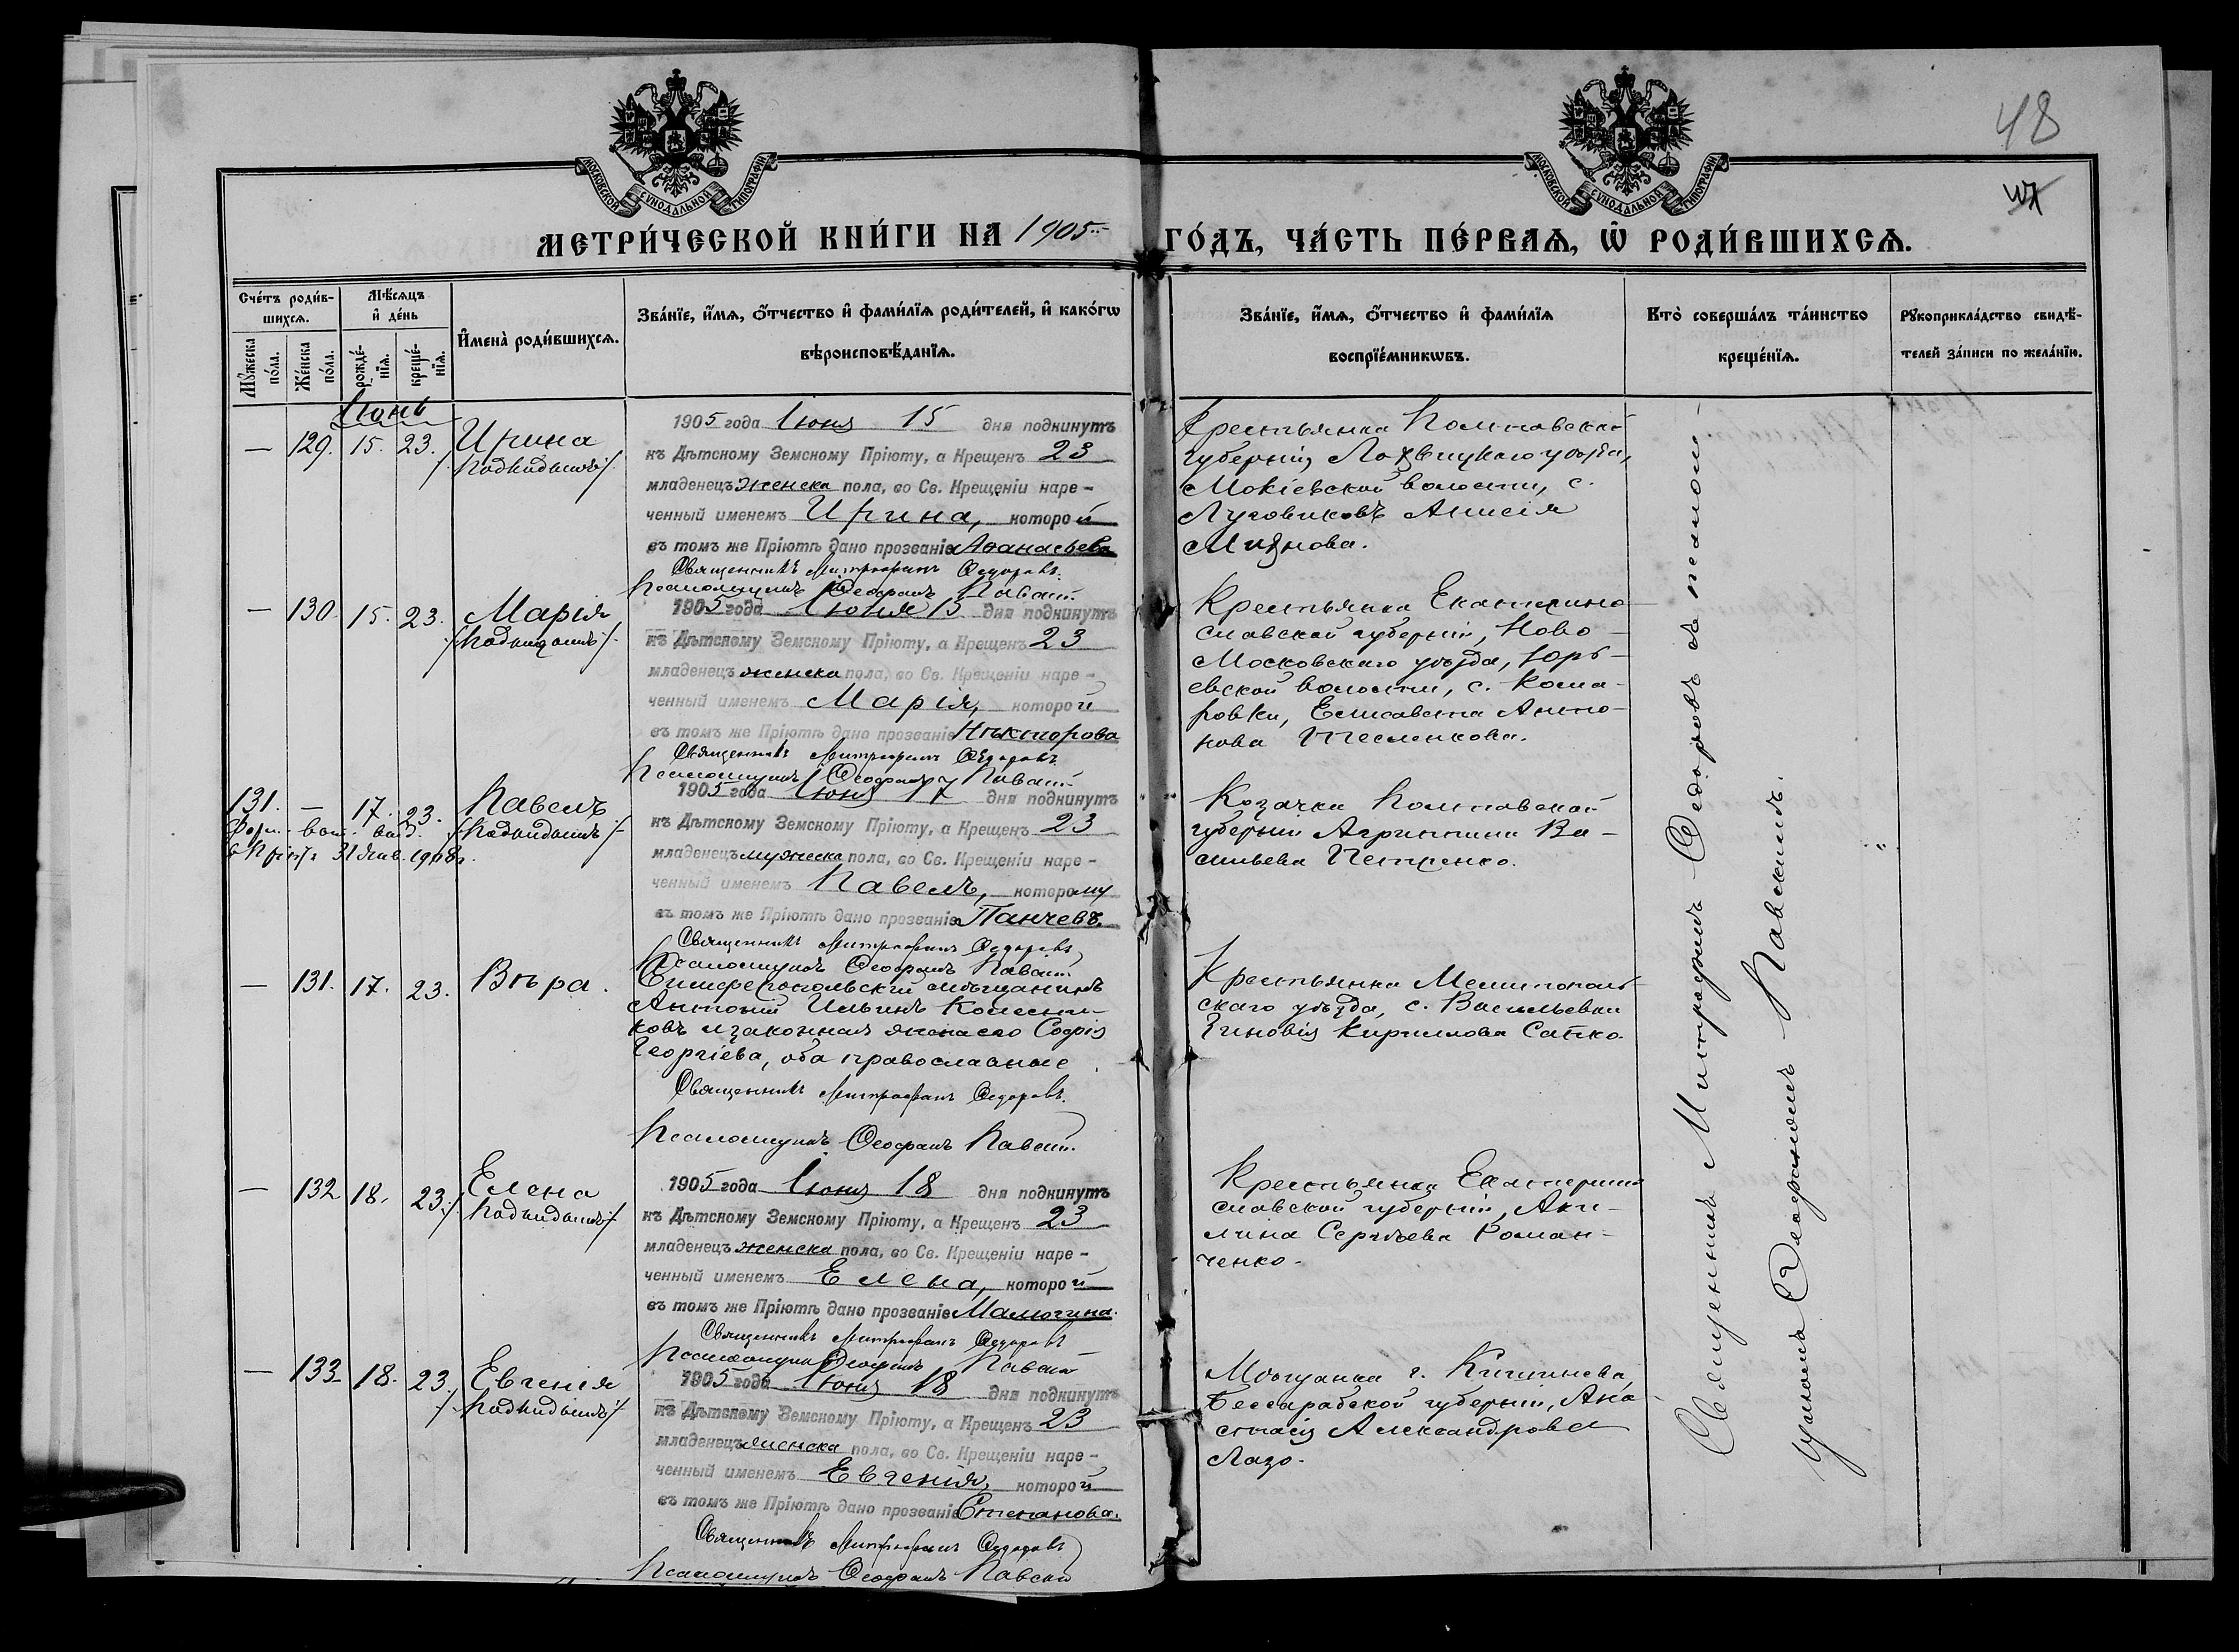 48
МОСКОВСКОЙ СѴНОДАЛЬНОЙ ТИПОГРАФІИ
МОСКОВСКОЙ СѴНОДАЛЬНОЙ ТИПОГРАФІИ
МЕТРИ́ЧЕСКОЙ КНИ́ГИ НА 1905 ГО́ДЪ, ЧА́СТЬ ПЕ́РВАѦ, Ѡ҆ РОДИ́ВШИХСѦ.
Сче́тъ роди́в-
шихсѧ.
Мꙋ́жеска по́ла.
Же́нска по́ла.
Мѣ́сѧцъ
и҆ де́нь
рожде́-
нїѧ.
креще́-
нїѧ.
И҆мена̀ роди́вшихсѧ.
Зва́нїе, и҆́мѧ, ѻ҆́тчество и҆ фами́лїѧ роди́телей, и҆ како́гѡ
вѣроисповѣ́данїѧ.
Зва́нїе, и҆́мѧ, ѻ҆́тчество и҆ фами́лїѧ
воспрїе́мникѡвъ.
Кто̀ соверша́лъ та́инство
креще́нїѧ.
Рꙋкоприкла́дство свидѣ́-
телей за́писи по жела́нїю.
Іюнь
— 129. 15. 23. Ирина
/:подкидышъ:/
1905 года Іюня 15 дня подкинутъ
къ Дѣтскому Земскому Пріюту, а Крещенъ 23
младенецъ женска пола, во Св. Крещеніи наре-
ченный именемъ Ирина, которой
въ томъ же Пріютѣ дано прозваніе Аѳанасьева
Священникъ Митрофанъ Ѳедоровъ
Псаломщикъ Ѳеофанъ Павскій
Крестьянка Полтавской
губерніи, Лохвицкаго уѣзда,
Мокіевской волости, с.
Луговиковъ Анисія
Мизнова.
— 130. 15. 23. Марія
/:подкидышъ:/
1905 года Іюня 15 дня подкинутъ
къ Дѣтскому Земскому Пріюту, а Крещенъ 23
младенецъ женска пола, во Св. Крещеніи наре-
ченный именемъ Марія, которой
въ томъ же Пріютѣ дано прозваніе Никторова
Священникъ Митрофанъ Ѳедоровъ
Псаломщикъ Ѳеофанъ Павскій
Крестьянка Екатерино-
славской губерніи, Ново-
Московскаго уѣзда, Юрь-
евской волости, с. Кома-
ровки, Елисавета Анто-
нова Тесленкова.
131. — 17. 23. Павелъ
/:подкидышъ:/
31 янв. 1908г.
1905 года Іюня 17 дня подкинутъ
къ Дѣтскому Земскому Пріюту, а Крещенъ 23
младенецъ мужеска пола, во Св. Крещеніи наре-
ченный именемъ Павелъ, которому
въ томъ же Пріютѣ дано прозваніе Панчевъ.
Священникъ Митрофанъ Ѳедоровъ
Псаломщикъ Ѳеофанъ Павскій
Козачка Полтавской
губерніи Агрипина Ва-
сильева Петренко.
— 131. 17. 23. Вѣра.
Симферопольскій мѣщанинъ
Антоній Ильинъ Колесни-
ковъ и законная жена его Софія
Георгіева, оба православные.
Священникъ Митрофанъ Ѳедоровъ.
Псаломщикъ Ѳеофанъ Павскій.
Крестьянка Мелитополь-
скаго уѣзда, с. Васильевки
Зиновія Кириллова Сапко.
— 132 18. 23. Елена
/:подкидышъ:/
1905 года Іюня 18 дня подкинутъ
къ Дѣтскому Земскому Пріюту, а Крещенъ 23
младенецъ женска пола, во Св. Крещеніи наре-
ченный именемъ Елена, которой
въ томъ же Пріютѣ дано прозваніе Малюгина.
Священникъ Митрофанъ Ѳедоровъ
Псаломщикъ Ѳеофанъ Павскій
Крестьянка Екатерино
славской губерніи, Аки-
лина Сергѣева Роман-
ченко.
— 133 18. 23. Евгенія
/:подкидышъ:/
1905 года Іюня 18 дня подкинутъ
къ Дѣтскому Земскому Пріюту, а Крещенъ 23
младенецъ женска пола, во Св. Крещеніи наре-
ченный именемъ Евгенія, которой
въ томъ же Пріютѣ дано прозваніе Степанова.
Священникъ Митрофанъ Ѳедоровъ
Псаломщикъ Ѳеофанъ Павскій
Мѣщанка г. Кишинева,
Бессарабской губерніи, Ана
стасія Александрова
Лазо.
Священникъ Митрофанъ Ѳедоровъ съ псалом-
щикомъ Ѳеофаномъ Павскимъ.